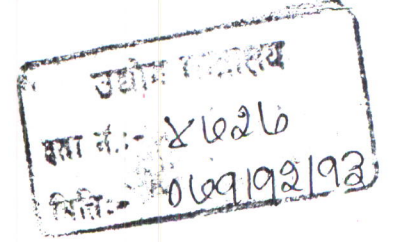 उद्योग मन्त्रालय
दर्ता नं.:- ४७२७
मिति:- ०७१।१२।१३